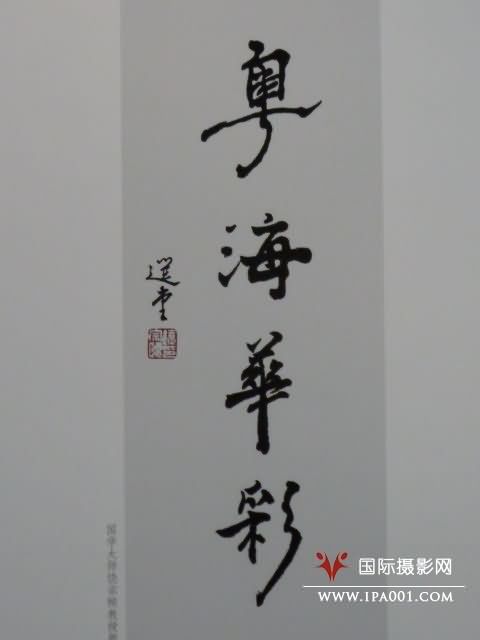 粤海華彩
選堂
国学大师饶宗颐教授题
国际摄影网
WWW.IPA001.COM